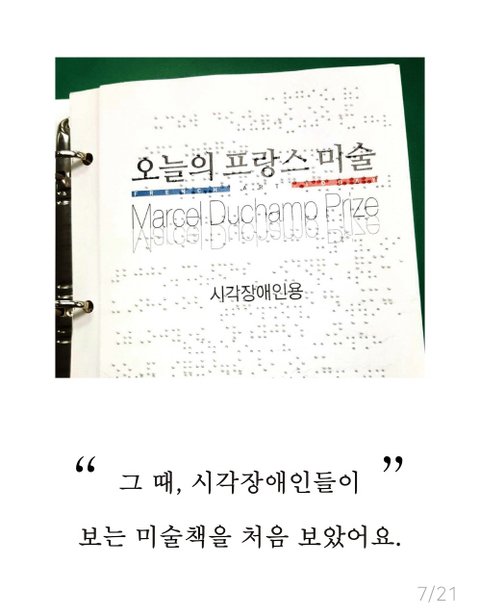 오늘의 프랑스 미술
Marcel Duchamp Prize
시각장애인용
“ 그 때, 시각장애인들이 ”
보는 미술책을 처음 보았어요.
7/21